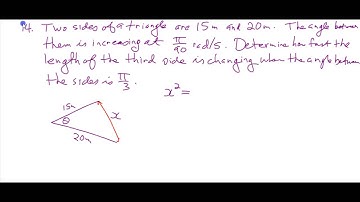 14. Two sides of a triangle are 15m and 20m. The angle between
them is increasing at π/90 rad/s. Determine how fast the
length of the third side is changing when the angle between
the sides is π/3.
x² =
15m
θ
x
20m